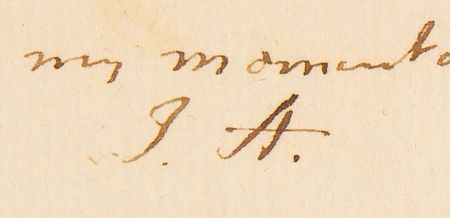 my moments
J. A.